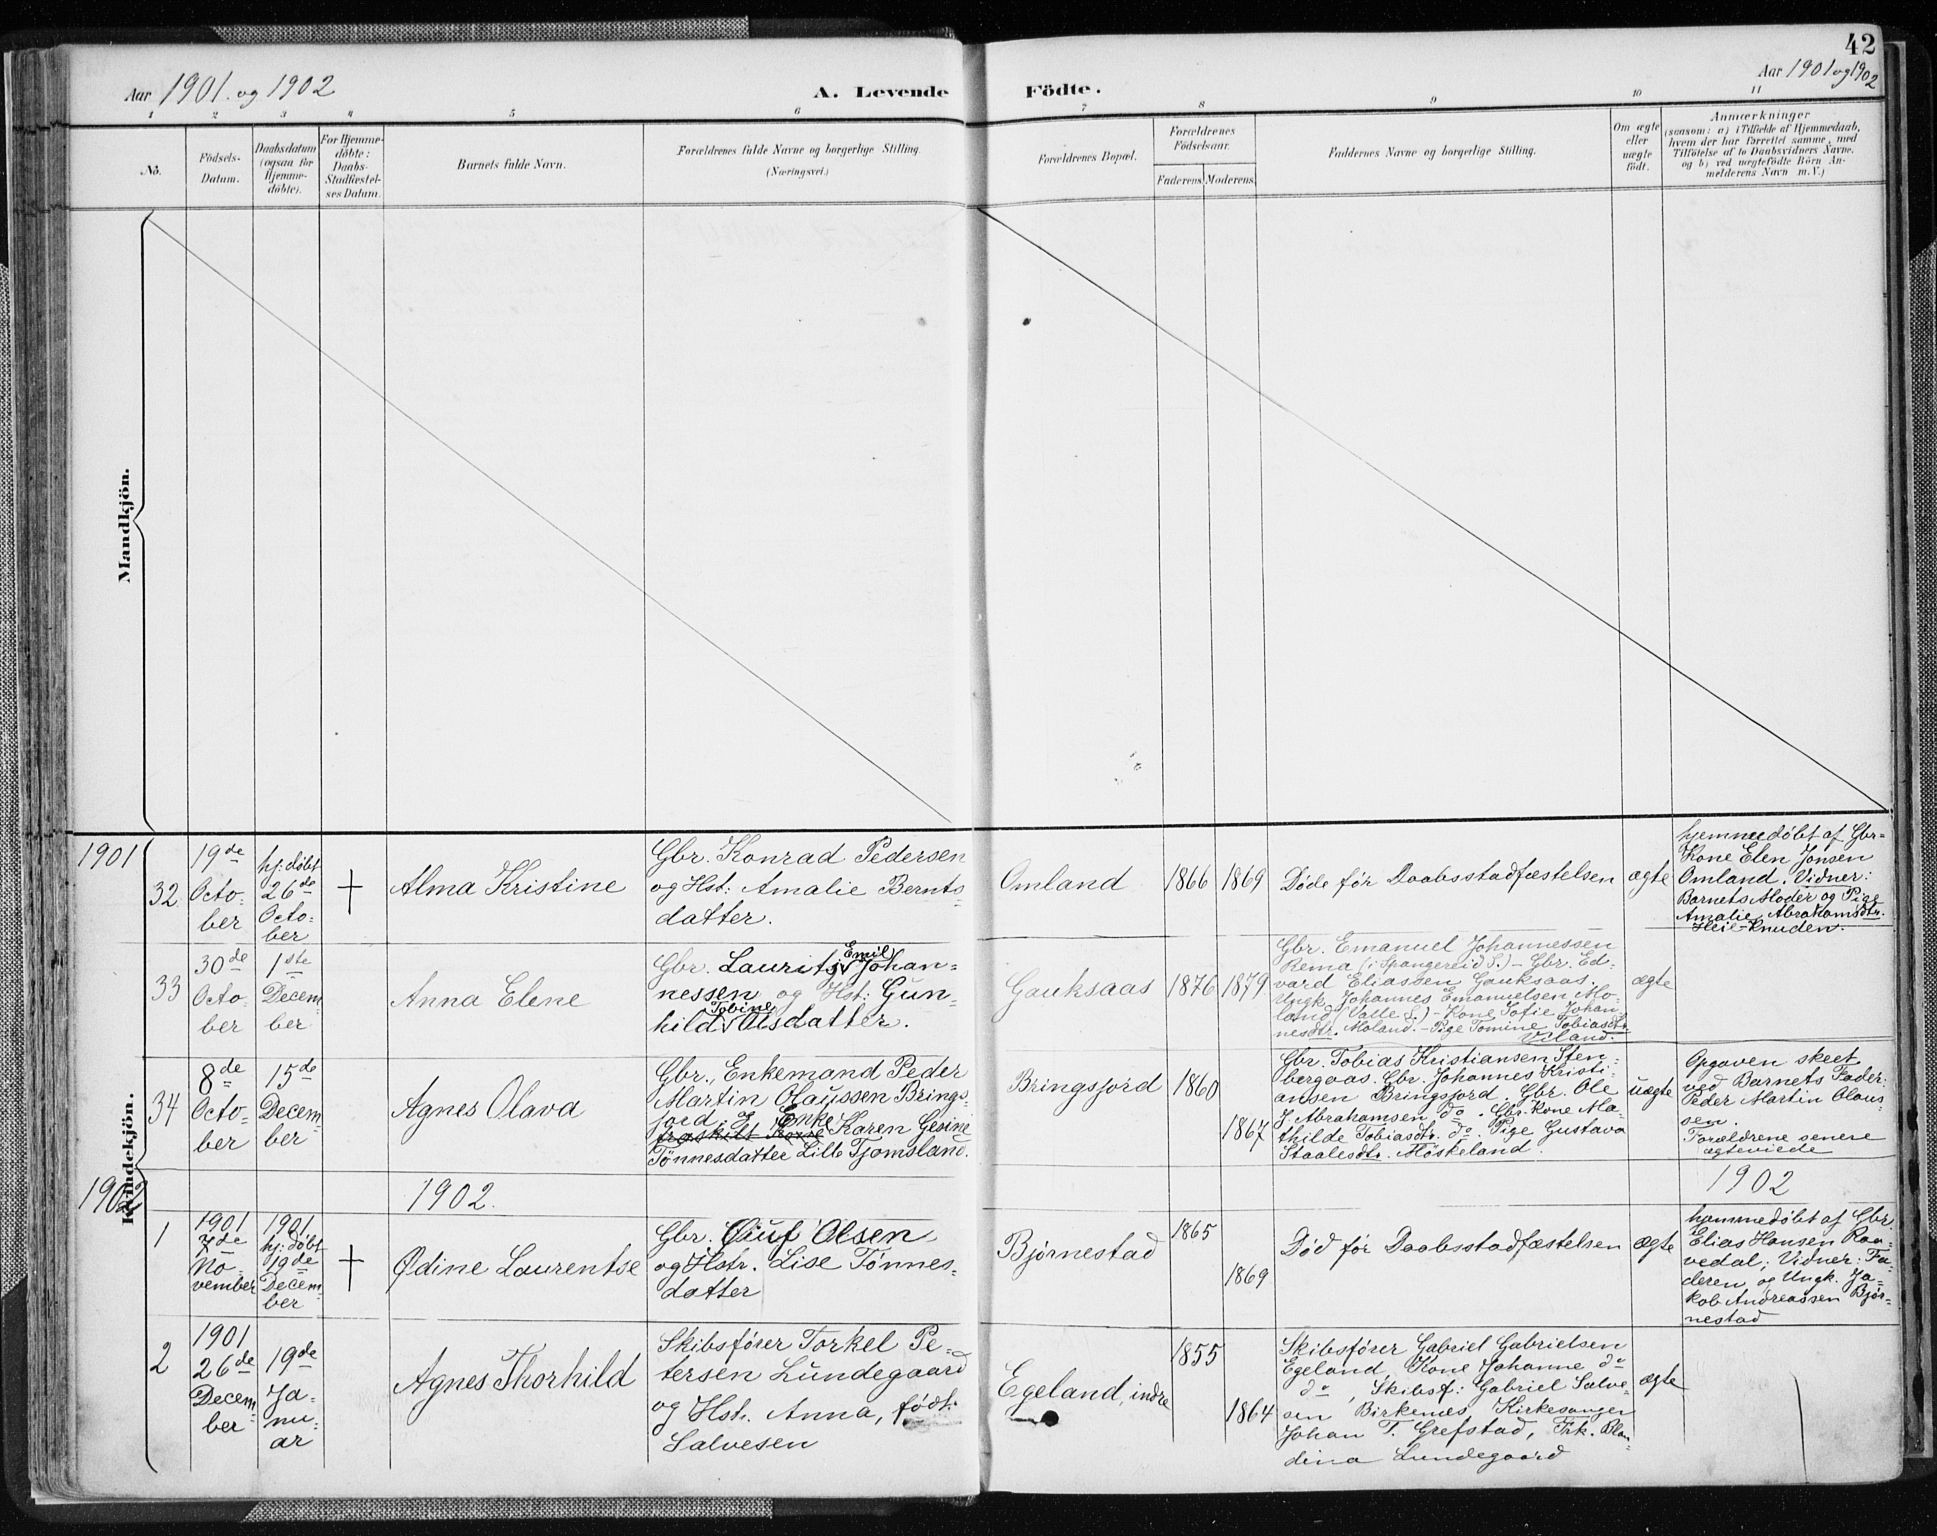 42
Aar 1901 og 1902
A. Levende Födte.
Aar 1901 og 1902
1 2 3 4 5 6 7 8 9 10 11
No.
Födsels-
Datum.
Daabsdatum
(ogsaa for
Hjemme-
döbte).
For Hjemme-
döbte:
Daabs-
Stadfæstel-
ses Datum.
Barnets fulde Navn.
Forældrenes fulde Navne og borgerlige Stilling.
(Næringsvei.)
Forældrenes Bopæl.
Forældrenes
Födselsaar.
Faderens. Moderens.
Faddernes Navne og borgerlige Stilling.
Om ægte
eller
uægte
födt.
Anmærkninger
(saasom: a) i Tilfælde af Hjemmedaab,
hvem der har forrettet samme, med
Tilföielse af to Daabsvidners Navne.
og b) ved uægtefödte Börn An-
melderens Navn m. V.)
Mandkjön.
Kvindekjön.
1901
32
19de
Octo-
ber
hj: døbt
26de
Octo-
ber
Alma Kristine
Gbr. Konrad Pedersen
og Hst: Amalie Bernts-
datter.
Omland
1866
1869
Døde før Daabsstadfæstelsen
ægte
hjemmedøbt af Gbr-
Kone Elen Jonsen
Omland. Vidner:
Barnets Moder og Pige
Amalie Abrahamsdtr.
Heie-Knuden.
33
30de
Octo-
ber
1ste
Decem-
ber
Anna Elene
Emil
Gbr. Laurits Johan-
nessen og Hst: Gun-
Tobine
hild Olsdatter.
Gauksaas
1876
1879
Gbr. Emanuel Johannessen
Rema (i Spangereid S.) - Gbr. Ed-
vard Eliassen Gauksaas.
Ungk. Johannes Emanuelsen Mo-
land (Valle S.) - Kone Tofie Johan-
nesdtr. Moland. - Pige Tomine Tobiasdtr.
ægte
34
8de
Octo-
ber
15de
Decem-
ber
Agnes Olava
Gbr., Enkemand Peder
Martin Olaussen Brings-
jord. og Enke
fraskilt Kone Karen Gesine
Tønnesdatter Lille Tjomsland.
Bringsjord
1860
1867
Gbr. Tobias Kristiansen Sten-
bergaas. Gbr. Johannes Kristi-
ansen Bringsjord. Gbr. Ole
J. Abrahamsen do. Gbr. Kone Ma-
thilde Tobiasdtr. do. Pige Gustava
Staalesdtr. Møskeland.
uægte
Opgaven skeet
ved Barnets Fader:
Peder Martin Olaus-
sen.
Forældrene senere
ægteviede
1902
1902.
1902
1
1901
7de
No-
vember
1901
hj: døbt
19de
Decem-
ber
Ødine Laurentse
Gbr. Oluf Olsen
og Hstr. Lise Tønnes-
datter
Bjørnestad
1865
1869
Død før Daabsstadfæstelsen
ægte
hjemmedøbt af Gbr.
Elias Hansen Raa-
vedal; Vidner: Fa-
deren og Ungk. Ja-
kob Andreassen Bjør-
nestad
2
1901
26de
Decem-
ber
19de
Ja-
nu-
ar
Agnes Thorhild
Skibsfører Torkel Pe-
tersen Lundegaard
og Hst. Anna, født
Salvesen
Egeland, indre
1855
1864
Skibsfører Gabriel Gabrielsen
Egeland, Kone Johanne do
do, Skibsf: Gabriel Salve-
sen Birkenes Kirkesanger
Johan T. Grefstad, Frk. Blan-
dina Lundegaard
ægte